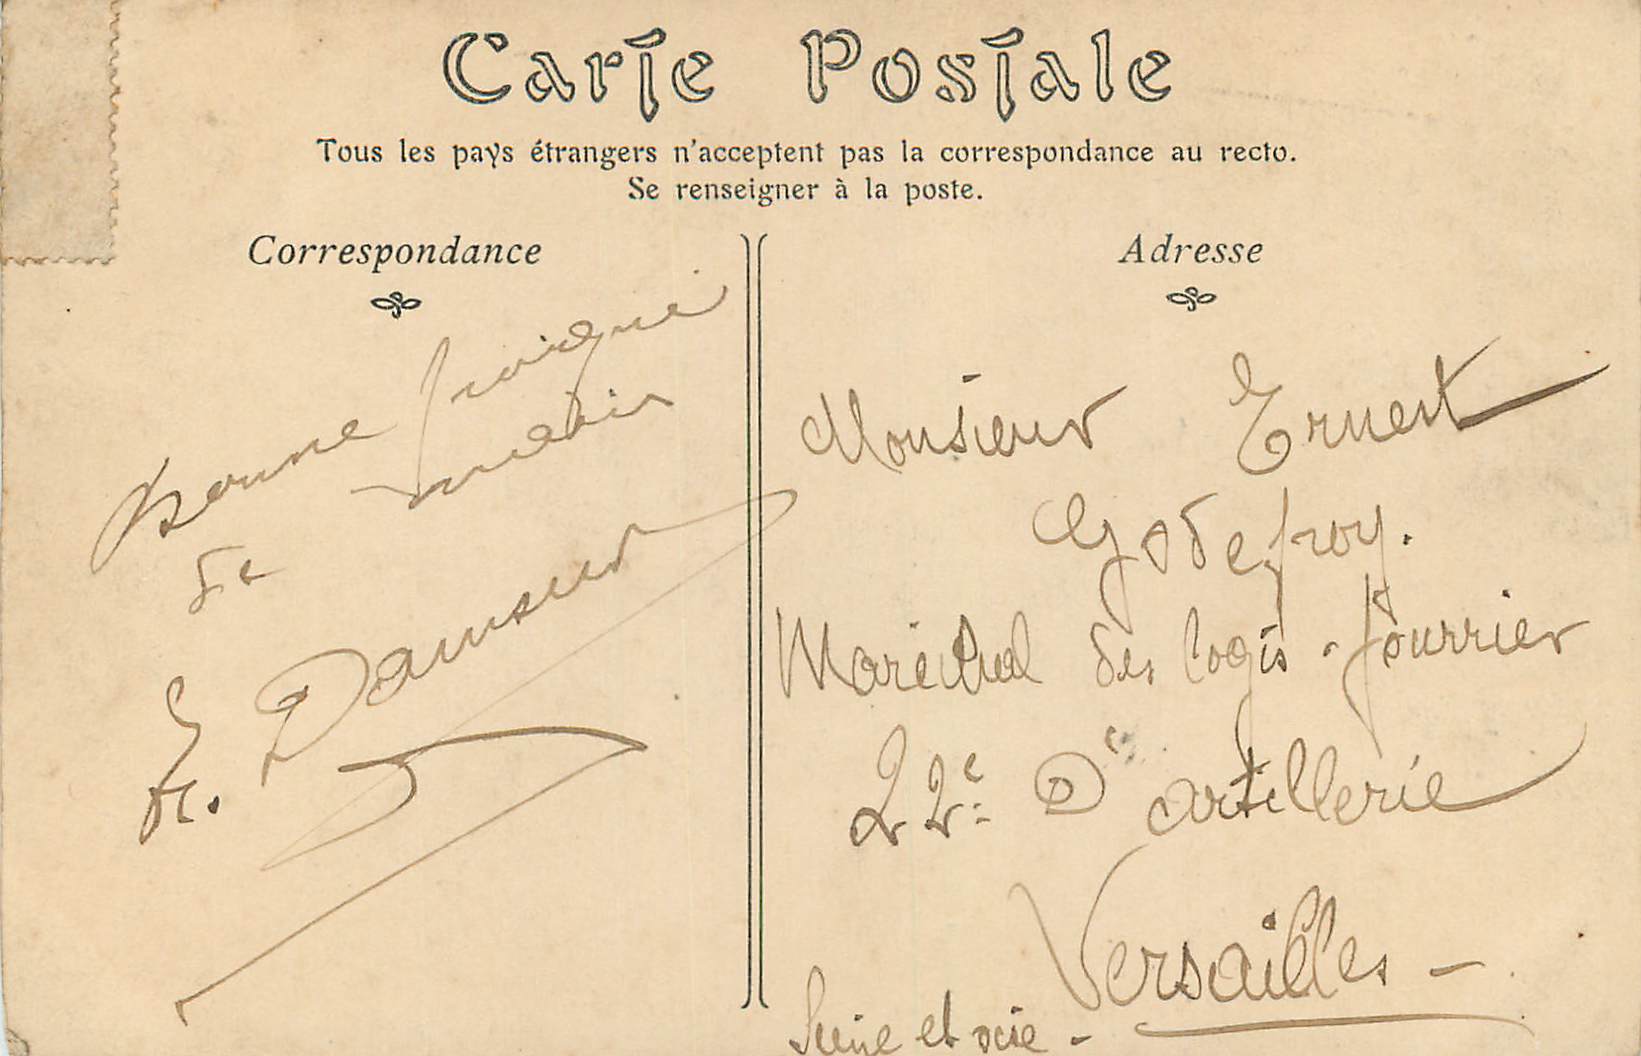 Carte Postale
Tous les pays étrangers n'acceptent pas la correspondance au recto.
Se renseigner à la poste.
Correspondance
Bonne
de
H.
Adresse
Monsieur Ernest
Godefroy.
Maréchal des logis - fourrier
22e D' artillerie
Versailles -
Seine et oise -